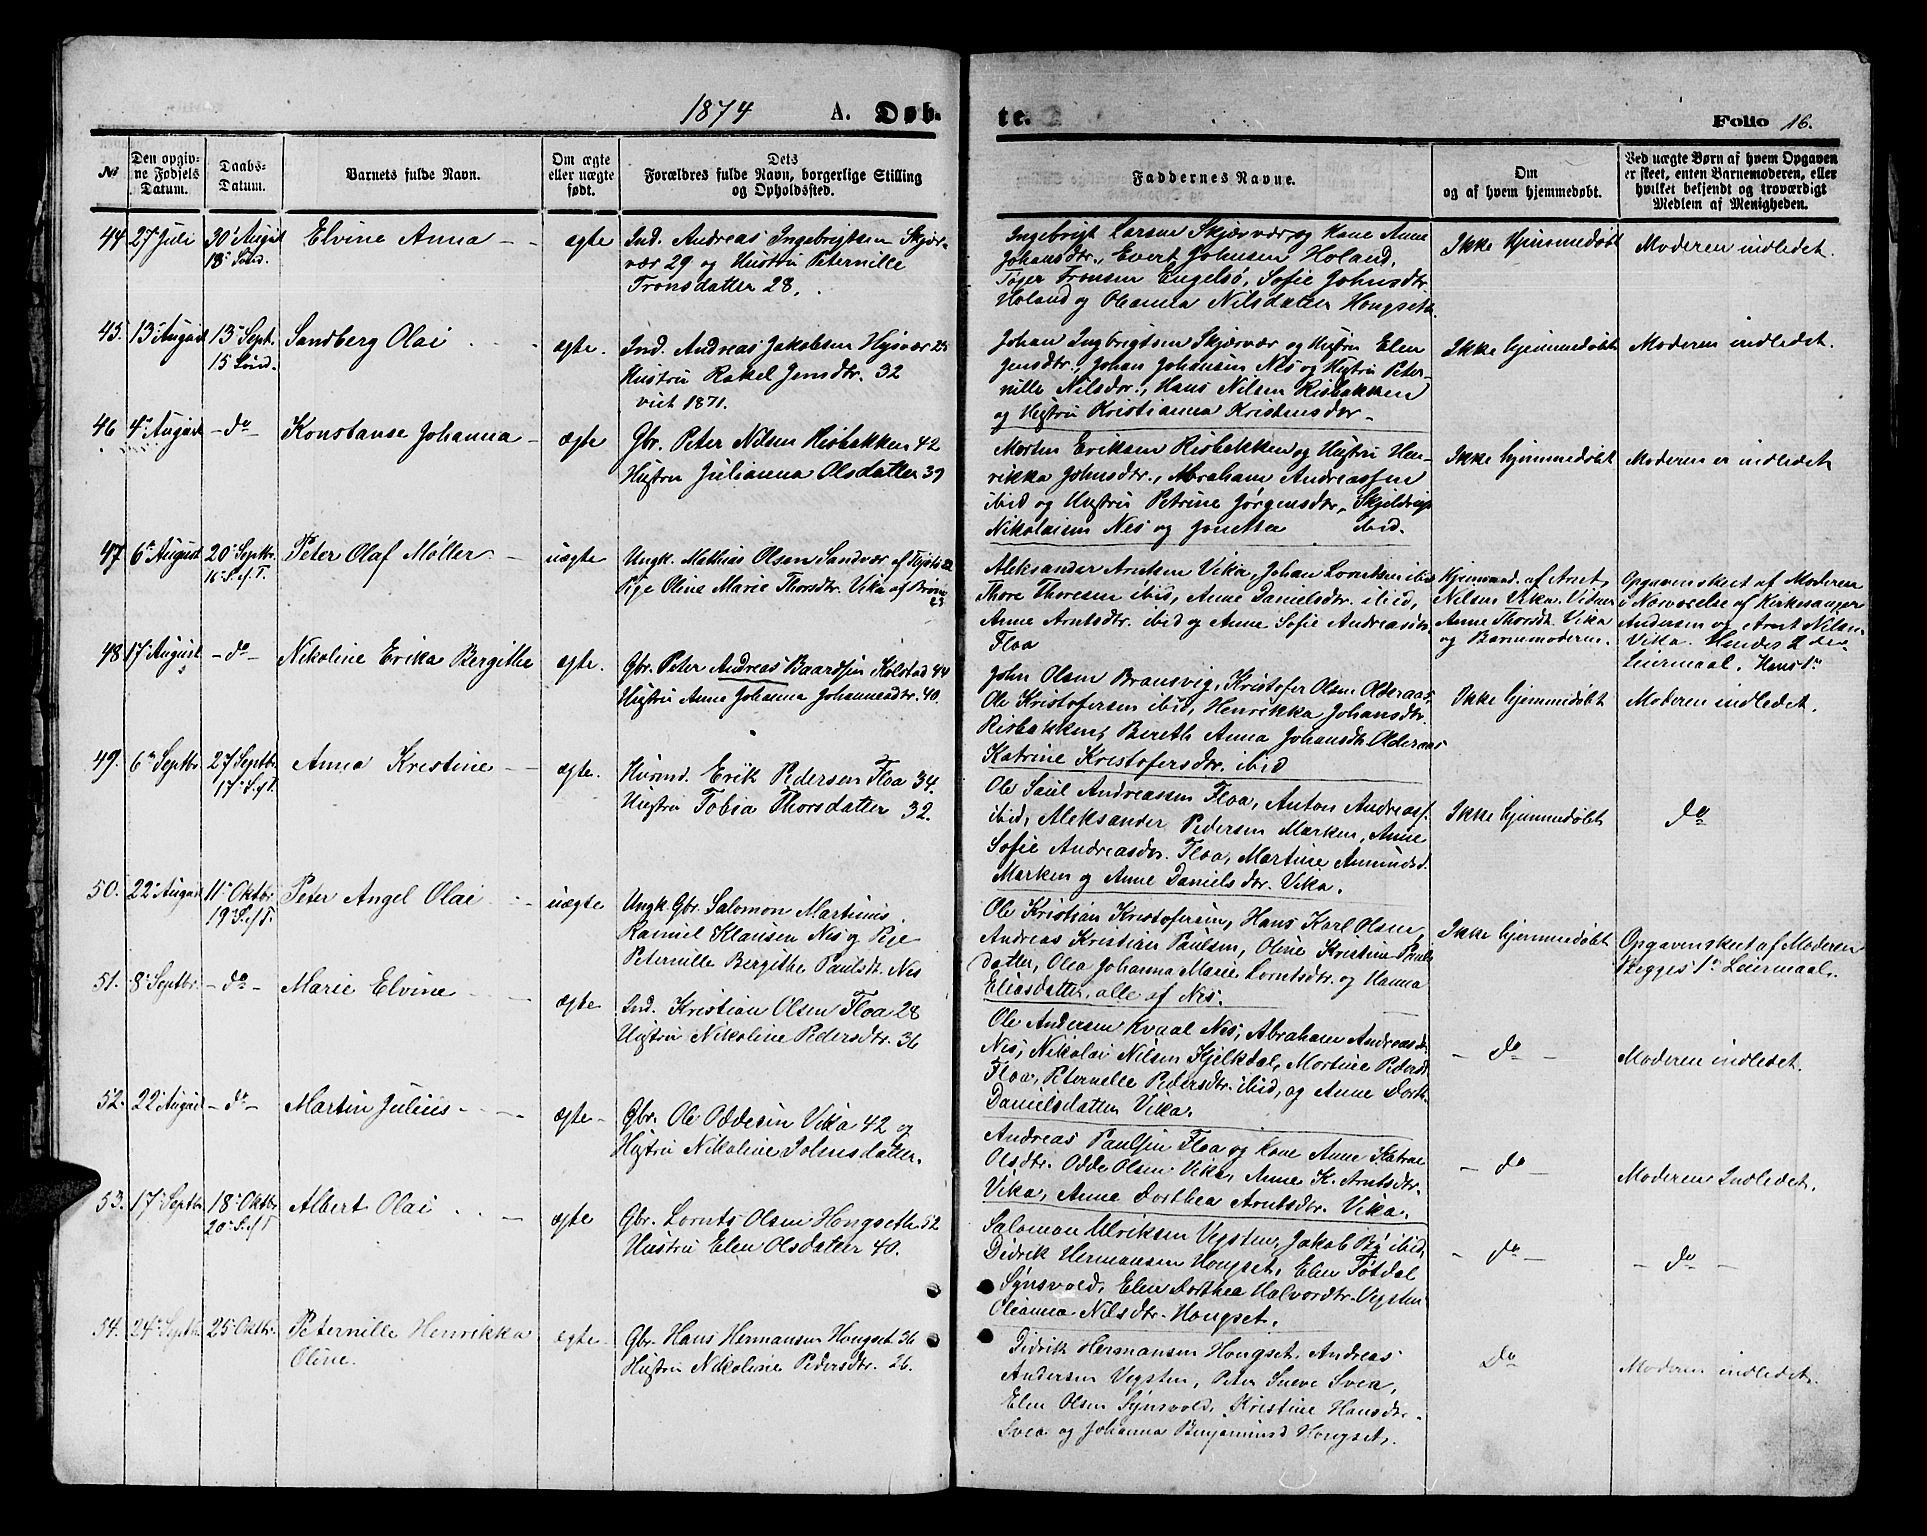 1874 A. Døb- te. Folio 16.
No
Den opgiv-
ne Fødsels
Datum.
Daabs-
Datum.
Barnets fulde Navn.
Om ægte
eller uægte
født.
Dets
Forældres fulde Navn, borgerlige Stilling
og Opholdssted.
Faddernes Navne.
Om
og af hvem hjemmedøbt.
Ved uægte Børn af hvem Opgaven
er skeet, enten Barnemoderen, eller
hvilket bekjendt og troværdigt
Medlem af Menigheden.
44 27 Juli 30 August
18 Sønd.
Elvine Anna
ægte
Ind. Andreas Ingebrigtsen Skjær-
vær 29 og Hustru Peternille
Tronsdatter 28.
Ingebrigt Larsen Skjærvær og Kone Anne
Johansdtr., Evert Johnsen Holand,
Tøger Tronsen Engelsø, Sofie Johnsdtr.
Holand og Oleanna Nilsdatter Hongseth.
Ikke hjemmedøbt
Moderen indledet.
45. 13 August 13 Sept.
15 Sønd.
Sandberg Olai
ægte.
Ind. Andreas Jakobsen Hysvær 25
Hustru Rakel Jensdtr. 32
viet 1871.
Johan Ingbrigtsen Skjærvær og Hustru Elen
Jensdtr., Johan Johansen Nes og Hustru Peter-
nille Nilsdtr., Hans Nilsen Risbakken
og Hustru Kristianna Kristensdtr
Ikke hjemmedøbt
Moderen indledet.
46 4 August - do -
Konstanse Johanna
ægte
Gbr. Peter Nilsen Risbakken 42
Hustru Julianna Olsdatter 39
Morten Eriksen Risbakken og Hustru Hen-
rikka Johnsdtr., Abraham Andreassen
ibid og Hustru Petrine Jørgensdtr, Skjeldrup
Nikolaisen Nes og Jonetta ibid.
Ikke hjemmedøbt
Moderen er indledet
47 6 August 20 Septbr.
16 S. ef. T.
Peter Olaf Møller
uægte
Ungk. Mathias Olsen Sandvær af
Pige Oline Marie Thorsdtr. Vika af Brønø
23
Aleksander Arntsen Vika, Johan Lorntsen ibid
Thore Thoresen ibid, Anne Danielsdtr. ibid,
Anne Arntsdtr. ibid og Anne Sofie Andreasdtr.
Floa
Hjemmed. af Arnt
Nilsen Vika. Vidner
Anne Thorsdtr. Vika
og Barnemoderen.
Opgaven skeet af Moderen
i Nærværelse af Kirkesanger
Andersen og Arnt Nilsen
Vika. Hendes 2det
Leiermaal. Hans 1ste
48 17 August - do -
Nikoline Erika Bergithe
ægte.
Gbr. Peter Andreas Baardsen Kolstad 44
Hustru Anne Johanna Johannesdtr. 40.
John Olsen Bransvig, Kristofer Olsen Olderaas
Ole Kristofersen ibid, Henrikka Johansdtr.
Risbakken, Bereth Anna Johansdtr. Olderaas
Katrine Kristofersdtr. ibid
Ikke hjemmedøbt
Moderen indledet.
49. 6 Septbr. 27 Septbr.
17 S. ef T.
Anna Kristine
ægte.
Husmd. Erik Pedersen Floa 34.
Hustru Tobia Thorsdatter 32.
Ole Saul Andreassen Floa, Anton Andreass.
ibid, Aleksander Pedersen Marken, Anne
Sofie Andreasdtr. Floa, Martine Amundsd.
Marken og Anne Danielsdtr. Vika.
Ikke hjemmedøbt
do
50. 22 August 11 Oktbr.
19 S. ef T.
Peter Angel Olai
uægte
Ungk. Gbr. Salomon Martinus
Ramiel Klausen Nes og Pige
Peternille Bergithe Paulsdtr. Nes
Ole Kristian Kristofersen, Hans Karl Olsen,
Andreas Kristian Paulsen, Oline Kristine Pauls-
datter, Olea Johanna Marie Lorntsdtr. og Hanna
Eliasdatter, alle af Nes.
Ikke hjemmedøbt
Opgaven skeet af Moderen
Begges 1ste Leiermaal.
51. 8 Septbr. - do -
Marie Elvine
ægte
Ind. Kristian Olsen Floa 28
Hustru Nikoline Pedersdtr. 36
Ole Andersen Kvaal Nes, Abraham Andreasen
Nes, Nikolai Nilsen Kjelkdal, Martine Pedersd.
Floa, Peternelle Pedersdtr. ibid, og Anne Dorth.
Danielsdatter Vika.
- do -
Moderen indledet.
52. 22 August - do -
Martin Julius
ægte
Gbr. Ole Oddesen Vika 42 og
Hustru Nikoline Johnsdatter.
Andreas Paulsen Floa og Kone Anne Katrine
Olsdtr. Odde Olsen Vika, Anne K. Arntsdtr.
Vika, Anne Dorthea Arntsdtr. Vika.
- do -
Moderen Indledet.
53. 17 Septbr. 18 Oktbr.
20 S. ef T
Albert Olai
ægte
Gbr. Lornts Olsen Hongseth 52
Hustru Elen Olsdatter 40.
Salomon Ulriksen Vegsten, Jakob By ibid,
Didrik Hermansen Hongset, Elen Totdal
Synsvold, Elen Dorthea Halvordtr. Vegsten
Oleanna Nilsdtr. Hongset.
- do -
- do -
54. 24 Septbr. 25 Oktbr.
Peternille Henrikka
Oline.
ægte
Gbr. Hans Hermansen Hongset 36
Hustru Nikoline Pedersdtr. 26.
Didrik Hermansen Hongset, Andreas
Andersen Vegsten, Peter Sneve Svea,
Elen Olsen Synsvold, Kristine Hansdtr.
Svea og Johanna Benjaminsd Hongset.
Do
Moderen indledet.